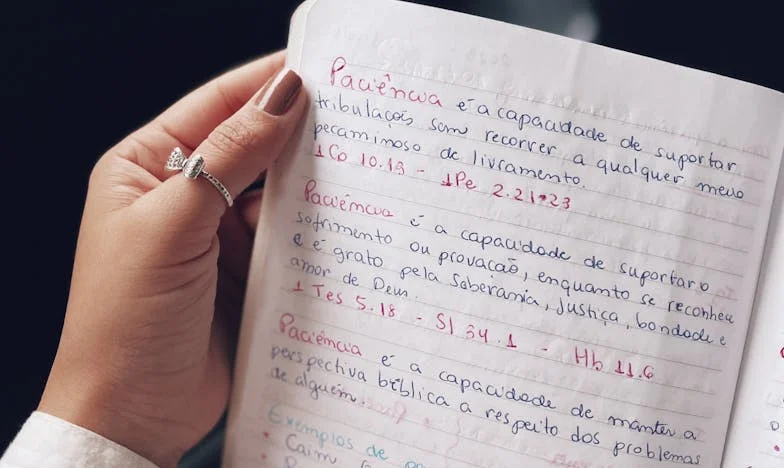 Paciência é a capacidade de suportar
tribulações sem recorrer a qualquer meio
pecaminoso de livramento.
1 Co 10.13 - 1 Pe 2.21-23
Paciência é a capacidade de suportar o
sofrimento ou provação, enquanto se reconhece
e é grato pela Soberania, Justiça, bondade e
amor de Deus.
1 Tes 5.18 - Sl 34.1 - Hb 11.6
Paciência é a capacidade de manter a
perspectiva bíblica a respeito dos problemas
de alguém.
Exemplos de
• Caim